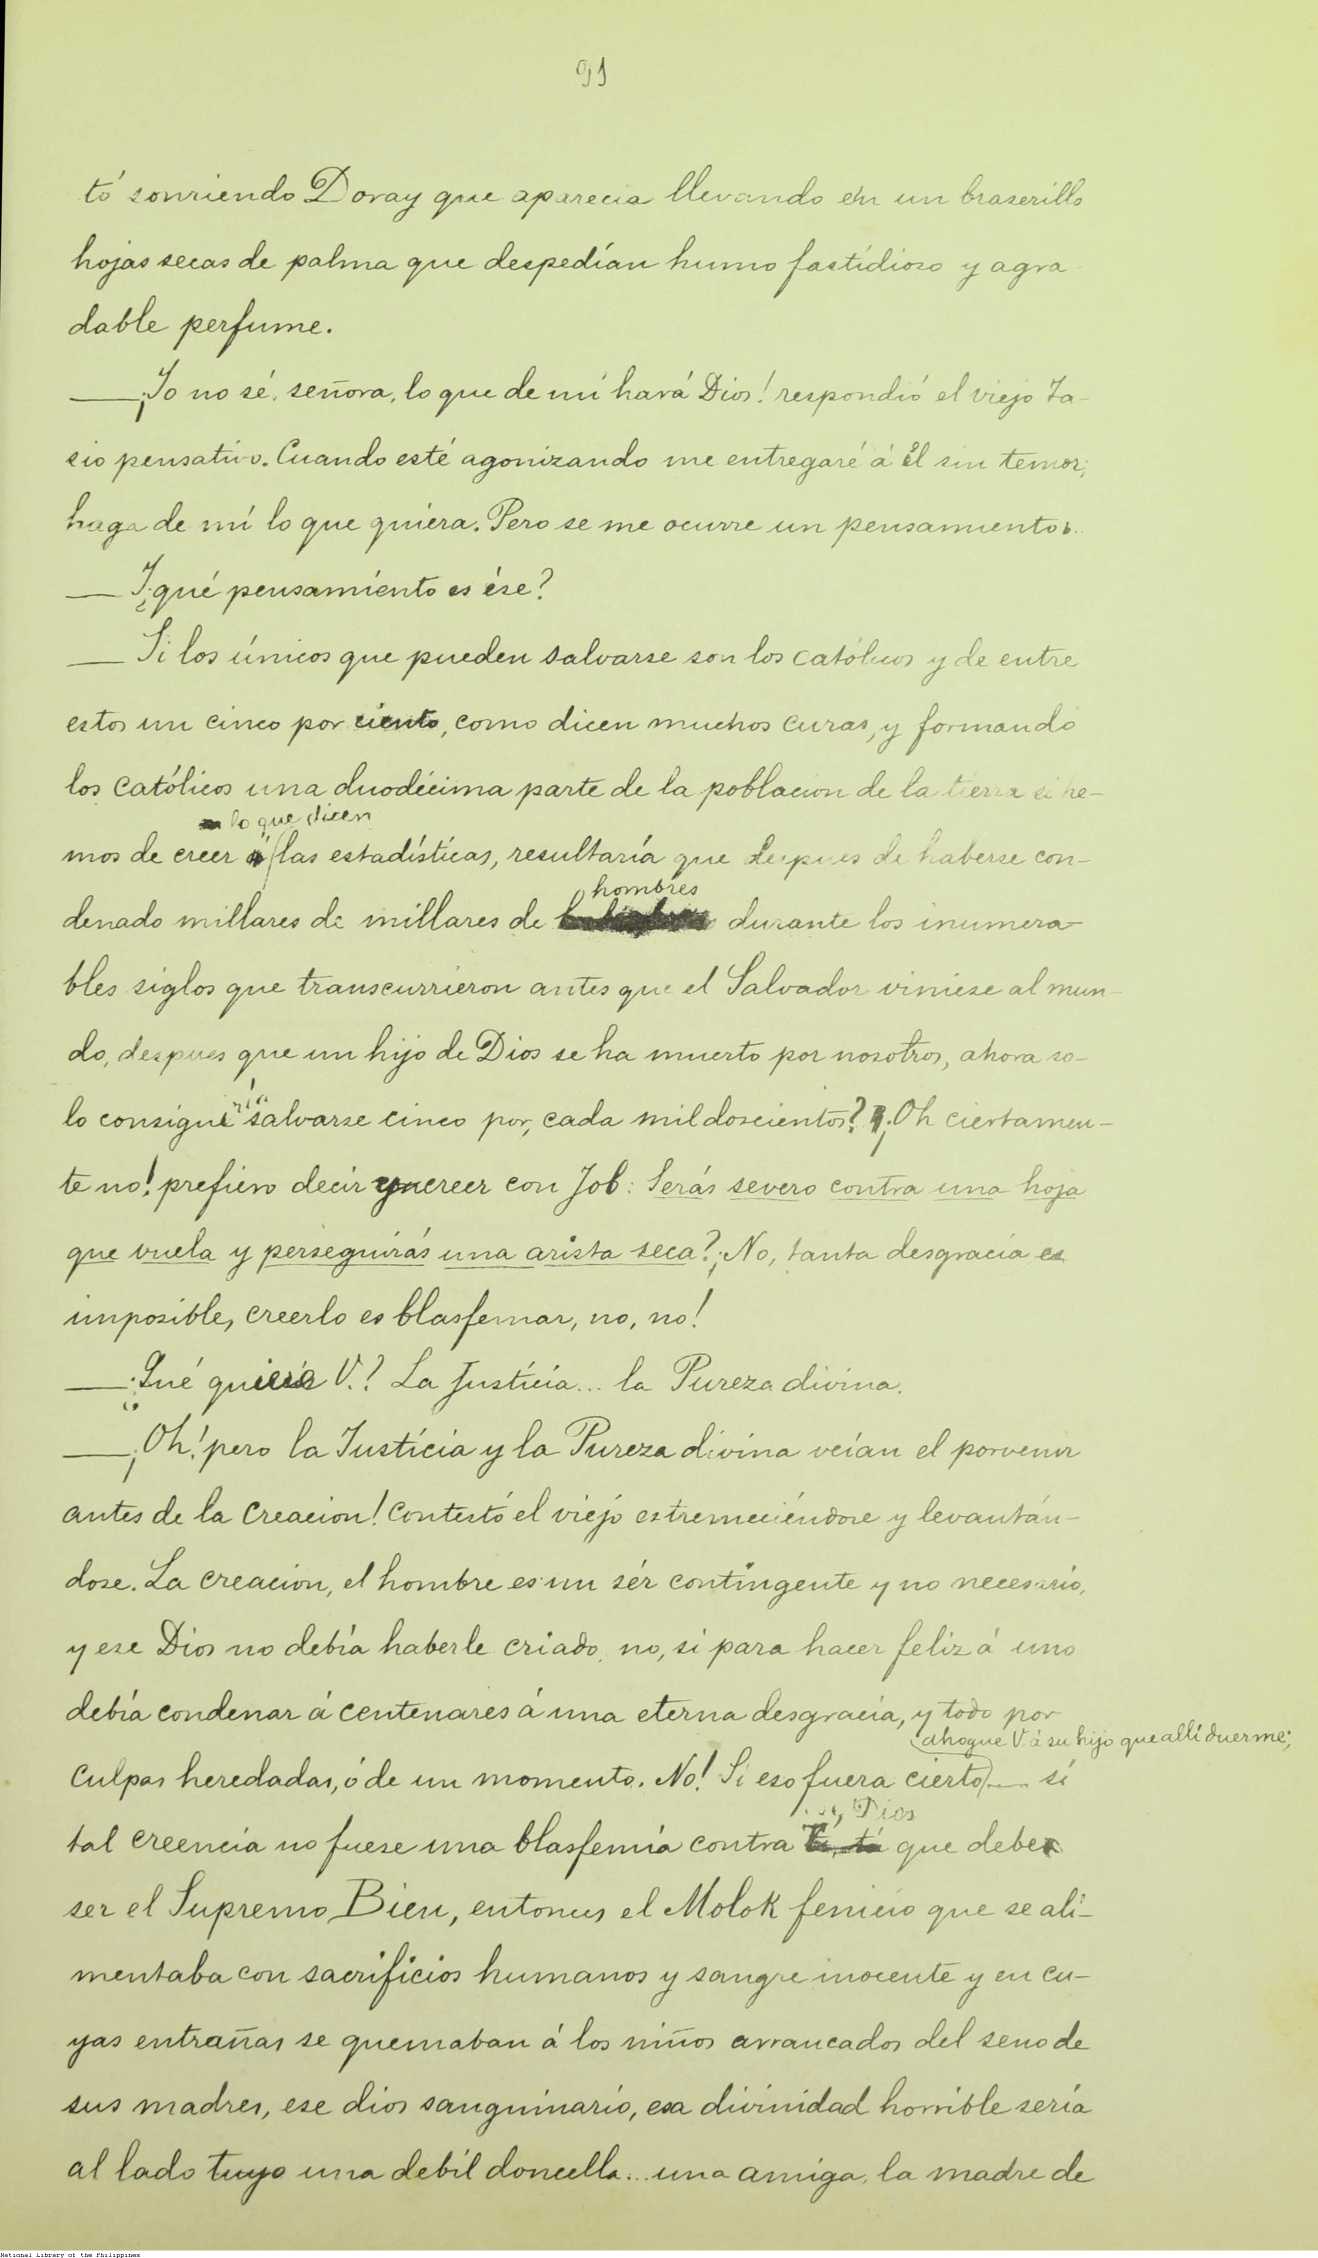 91
tó sonriendo Doray que aparecia llevando en un braserillo
hojas secas de palma que despedían humo fastidioso y agra
dable perfume.
— ¡Yo no sé, señora, lo que de mí hará Dios! respondió el viejo Ta-
sio pensativo. Cuando esté agonizando me entregaré á Él sin temor;
haga de mí lo que quiera. Pero se me ocurre un pensamiento..
— Y ¿qué pensamiento es ése?
— Si los únicos que pueden salvarse son los católicos y de entre
estos un cinco por ciento, como dicen muchos curas, y formando
los católicos una duodécima parte de la poblacion de la tierra si he-
lo que dicen
mos de creer á las estadísticas, resultaría que despues de haberse con-
hombres
denado millares de millares de durante los inumera-
bles siglos que transcurrieron antes que el Salvador viniese al mun-
do, despues que un hijo de Dios se ha muerto por nosotros, ahora so-
ría
lo consigue salvarse cinco por, cada mil doscientos? ¡Oh ciertamen-
te no! prefiero decir y creer con Job: Serás severo contra una hoja
que vuela y perseguirás una arista seca? ¡No, tanta desgracia es
imposible, creerlo es blasfemar, no, no!
— ¿Qué quiere V.? La Justicia... la Pureza divina.
— ¡Oh! pero la Justicia y la Pureza divina veían el porvenir
antes de la Creacion! contestó el viejo estremeciéndose y levantán-
dose. La creacion, el hombre es un sér contingente y no necesario,
y ese Dios no debía haberle criado, no, si para hacer feliz á uno
debía condenar á centenares á una eterna desgracia, y todo por
ahogue V. á su hijo que allí duerme;
culpas heredadas, ó de un momento. No! Si eso fuera cierto — si
Dios
tal creencia no fuese una blasfemia contra Ti, tú que debe
ser el Supremo Bien, entonces el Molok fenicio que se ali-
mentaba con sacrificios humanos y sangre inocente y en cu-
yas entrañas se quemaban á los niños arrancados del seno de
sus madres, ese dios sanguinario, esa divinidad horrible sería
al lado tuyo una debil doncella... una amiga, la madre de
National Library of the Philippines